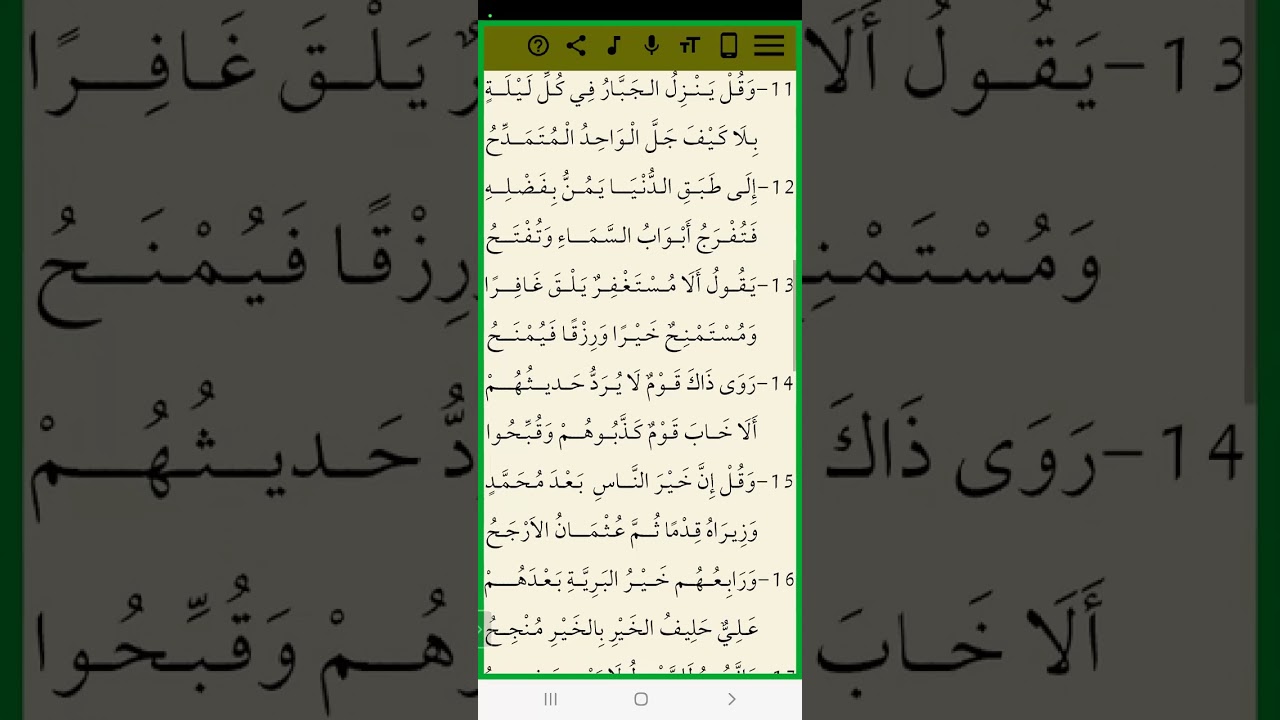 11-وَقُلْ يَنْزِلُ الجَبَّارُ فِي كُلِّ لَيْلَةٍ
بِلَا كَيْفَ جَلَّ الْوَاحِدُ الْمُتَمَدِّحُ
12-إِلَى طَبَقِ الدُّنْيَا يَمُنُّ بِفَضْلِهِ
فَتُفْرَجُ أَبْوَابُ السَّمَاءِ وَتُفْتَحُ
13-يَقُولُ أَلَا مُسْتَغْفِرٌ يَلْقَ غَافِرًا
وَمُسْتَمْنِحٌ خَيْرًا وَرِزْقًا فَيُمْنَحُ
14-رَوَى ذَاكَ قَوْمٌ لَا يُرَدُّ حَديثُهُمْ
أَلَا خَابَ قَوْمٌ كَذَّبُوهُمْ وَقُبِّحُوا
15-وَقُلْ إِنَّ خَيْرَ النَّاسِ بَعْدَ مُحَمَّدٍ
وَزِيرَاهُ قِدْمًا ثُمَّ عُثْمَانُ الاَرْجَحُ
16-وَرَابِعُهُم خَيْرُ البَرِيَّةِ بَعْدَهُمْ
عَلِيٌّ حَلِيفُ الخَيْرِ بِالخَيْرِ مُنْجِحُ